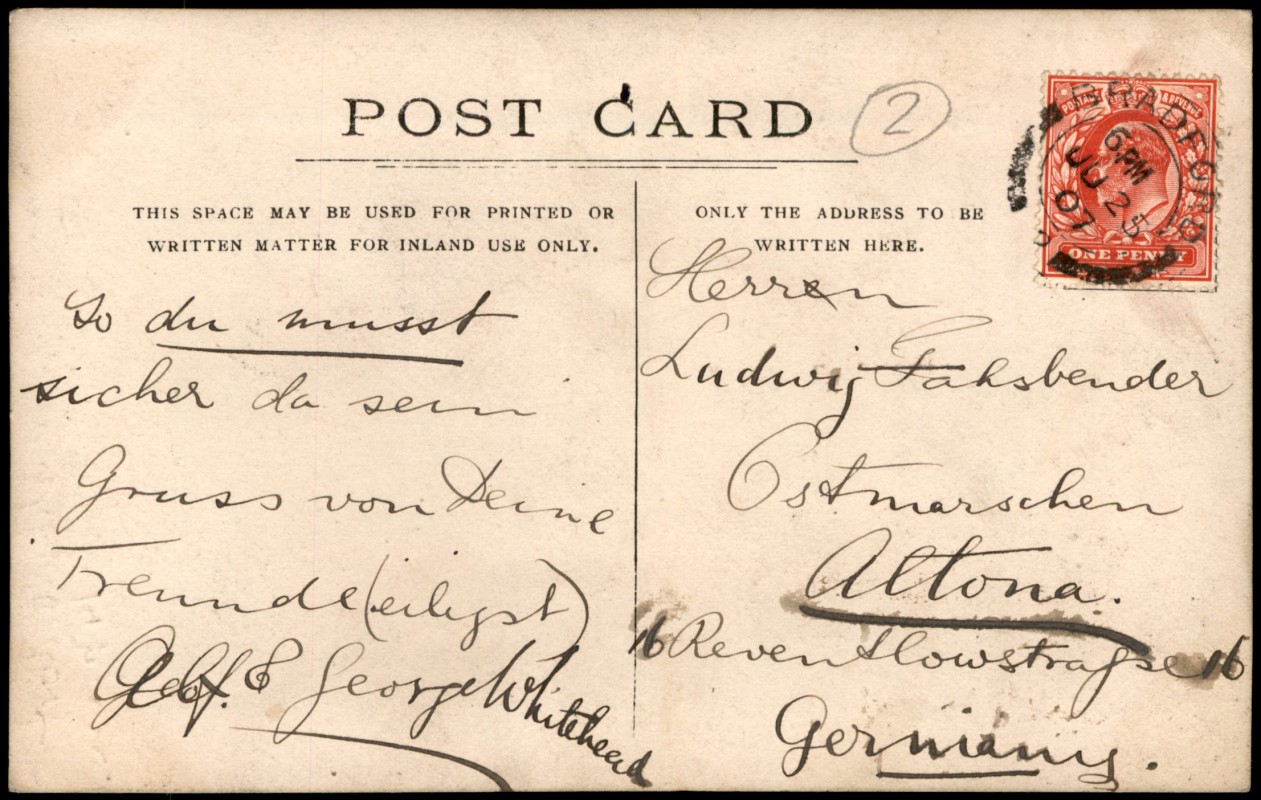 POST CARD
2
THIS SPACE MAY BE USED FOR PRINTED OR
WRITTEN MATTER FOR INLAND USE ONLY.
So du musst
sicher da sein
Gruss von Deine
Freunde (eiligst)
George Whitehead
ONLY THE ADDRESS TO BE
WRITTEN HERE.
Herren
Ludwig Fahsbender
Ostmarschen
Altona.
16 Reventlowstraße 16
Germany.
POSTAGE & REVENUE
ONE PENNY
BRADFORD
6 PM
JU 25
07